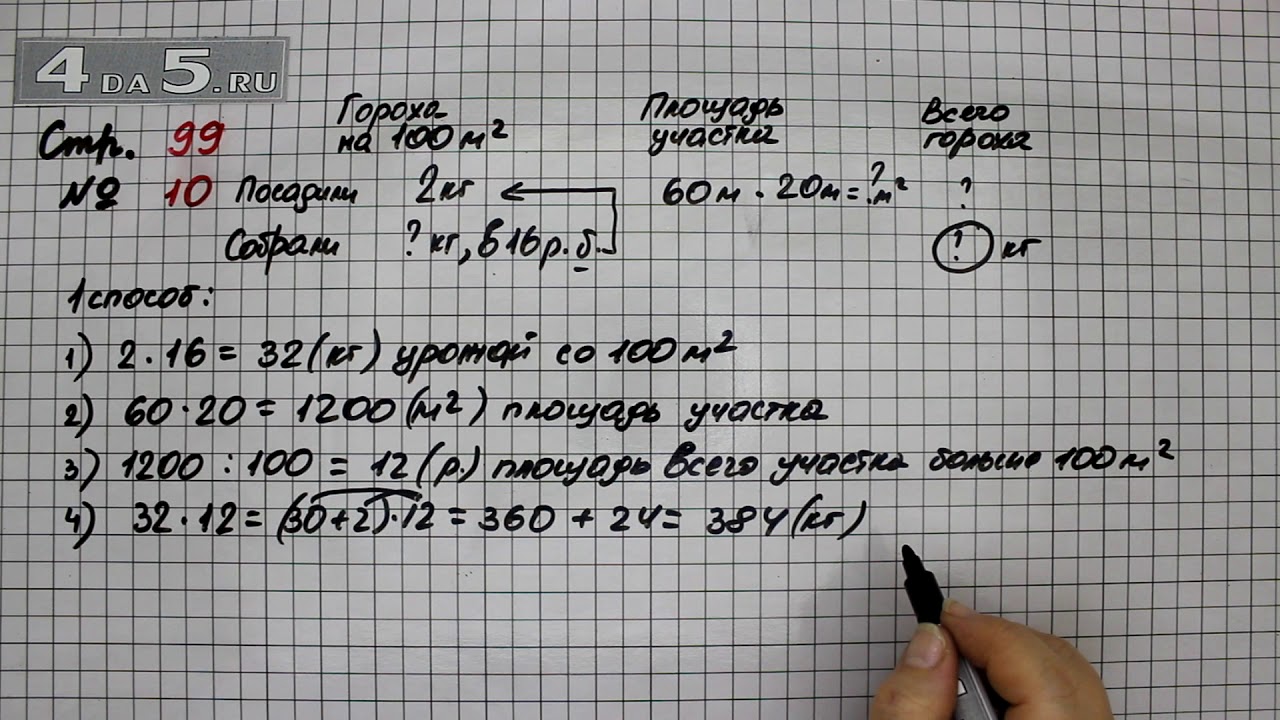 4DA5.RU
Гороха на 100 м² Площадь участка Всего гороха
Стр. 99
№ 10 Посадили 2 кг 60м · 20м = ? м² ?
Собрали ? кг, в 16 р. б. ? кг
1 способ:
1) 2 · 16 = 32 (кг) урожай со 100 м²
2) 60 · 20 = 1200 (м²) площадь участка
3) 1200 : 100 = 12 (р.) площадь всего участка больше 100 м²
4) 32 · 12 = (30 + 2) · 12 = 360 + 24 = 384 (кг)